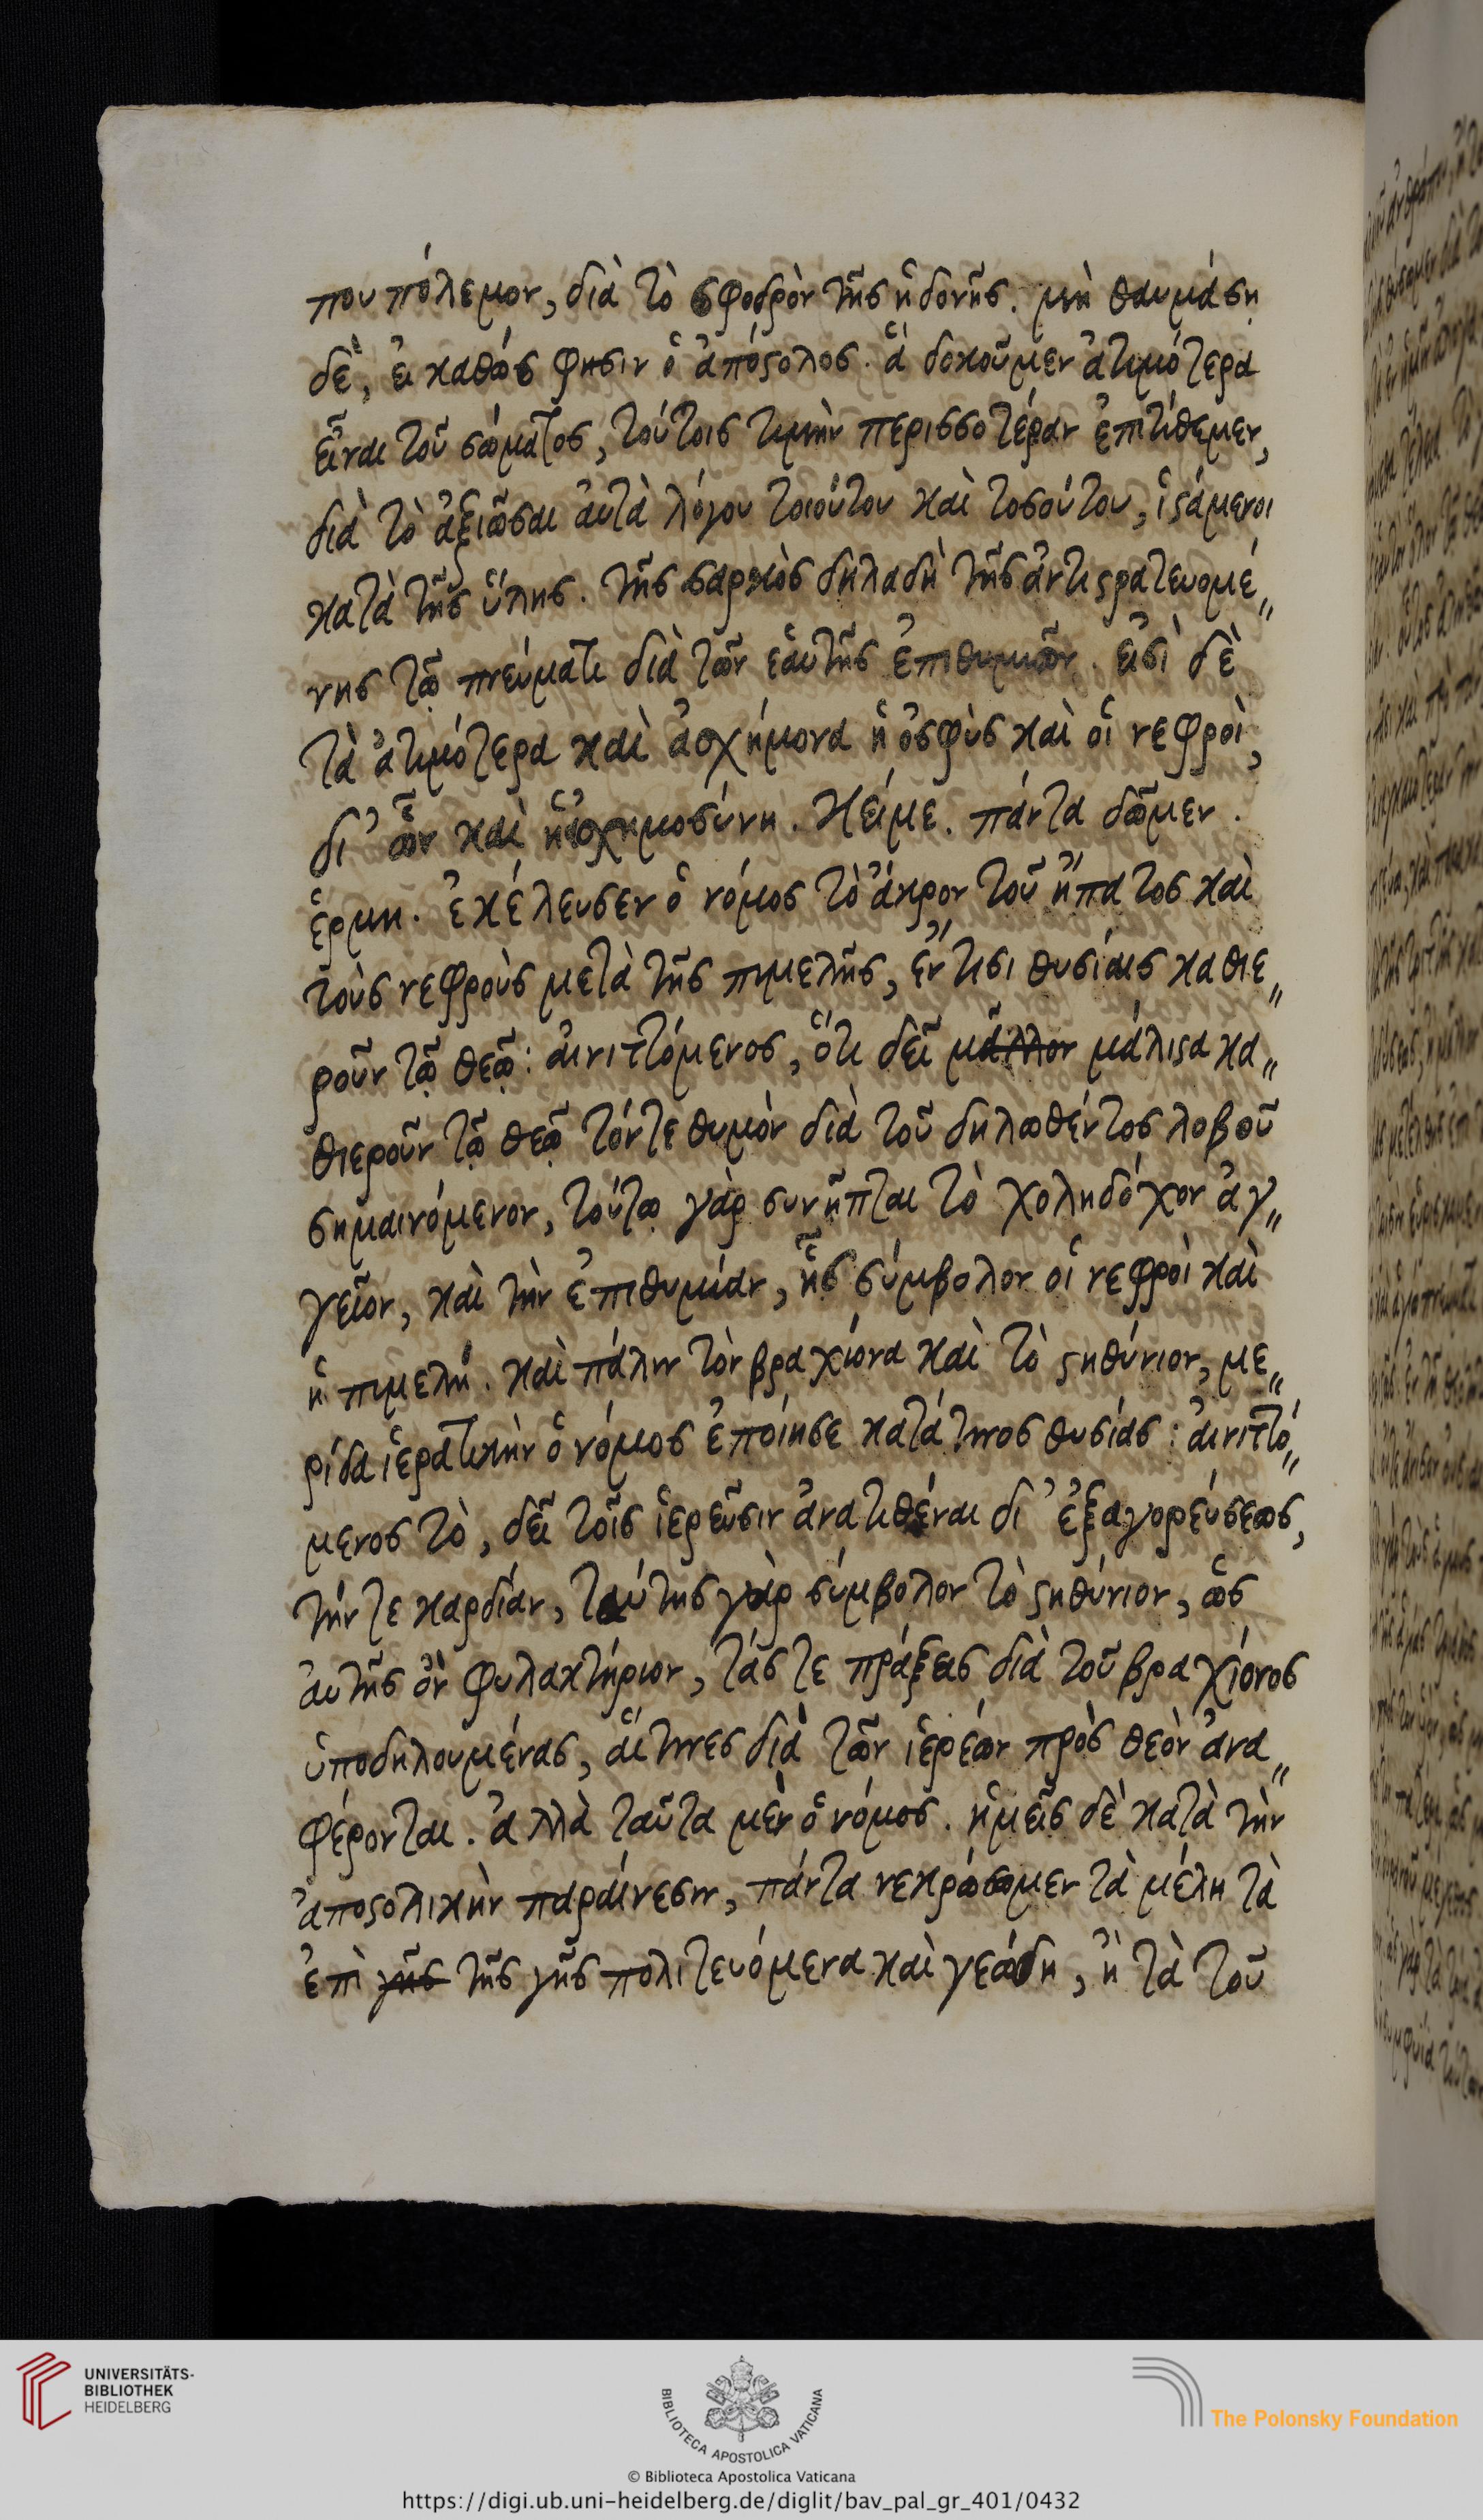 που πόλεμον, διὰ τὸ σφοδρὸν τῆς ἡδονῆς. μὴ θαυμάσῃ
δὲ, εἰ καθώς φησιν ὁ ἀπόστολος. ἃ δοκοῦμεν ἀτιμότερα
εἶναι τοῦ σώματος, τούτοις τιμὴν περισσοτέραν ἐπιτίθεμεν,
διὰ τὸ ἀξιῶσαι αὐτὰ λόγου τοιούτου καὶ τοσούτου, ἱστάμενοι
κατὰ τῆς ὕλης. τῆς σαρκὸς δηλαδὴ τῆς ἀντιστρατευομέ„
νης τῷ πνεύματι διὰ τῶν ἑαυτῆς ἐπιθυμιῶν. εἰσὶ δὲ
τὰ ἀτιμότερα καὶ ἀσχήμονα ἡ ὀσφὺς καὶ οἱ νεφροὶ,
δι' ὧν καὶ ἡ ἀσχημοσύνη. Κείμε. πάντα δῶμεν.
ἑρμη. ἐκέλευσεν ὁ νόμος τὸ ἄκρον τοῦ ἥπατος καὶ
τοὺς νεφροὺς μετὰ τῆς πιμελῆς, ἔν τισι θυσίαις καθιε„
ροῦν τῷ θεῷ: αἰνιττόμενος, ὅτι δεῖ μᾶλλον μάλιστα κα„
θιεροῦν τῷ θεῷ τόν τε θυμὸν διὰ τοῦ δηλωθέντος λοβοῦ
σημαινόμενον, τούτῳ γὰρ συνῆπται τὸ χοληδόχον ἀγ„
γεῖον, καὶ τὴν ἐπιθυμίαν, ἧς σύμβολον οἱ νεφροὶ καὶ
ἡ πιμελή. καὶ πάλιν τὸν βραχίονα καὶ τὸ στηθύνιον, με„
ρίδα ἱερατικὴν ὁ νόμος ἐποίησε κατά τινος θυσίας: αἰνιττό„
μενος τὸ, δεῖ τοῖς ἱερεῦσιν ἀνατιθέναι δι' ἐξαγορεύσεως,
τήν τε καρδίαν, ταύτης γὰρ σύμβολον τὸ στηθύνιον, ὡς
αὐτῆς ὂν φυλακτήριον, τάς τε πράξεις διὰ τοῦ βραχίονος
ὑποδηλουμένας, αἵτινες διὰ τῶν ἱερέων πρὸς θεὸν ἀνα„
φέρονται. ἀλλὰ ταῦτα μὲν ὁ νόμος. ἡμεῖς δὲ κατὰ τὴν
ἀποστολικὴν παραίνεσιν, πάντα νεκρώσωμεν τὰ μέλη τὰ
ἐπὶ γῆς τῆς γῆς πολιτευόμενα καὶ γεώδη, ἢ τὰ τοῦ
UNIVERSITÄTS-
BIBLIOTHEK
HEIDELBERG
BIBLIOTECA APOSTOLICA VATICANA
The Polonsky Foundation
© Biblioteca Apostolica Vaticana
https://digi.ub.uni-heidelberg.de/diglit/bav_pal_gr_401/0432